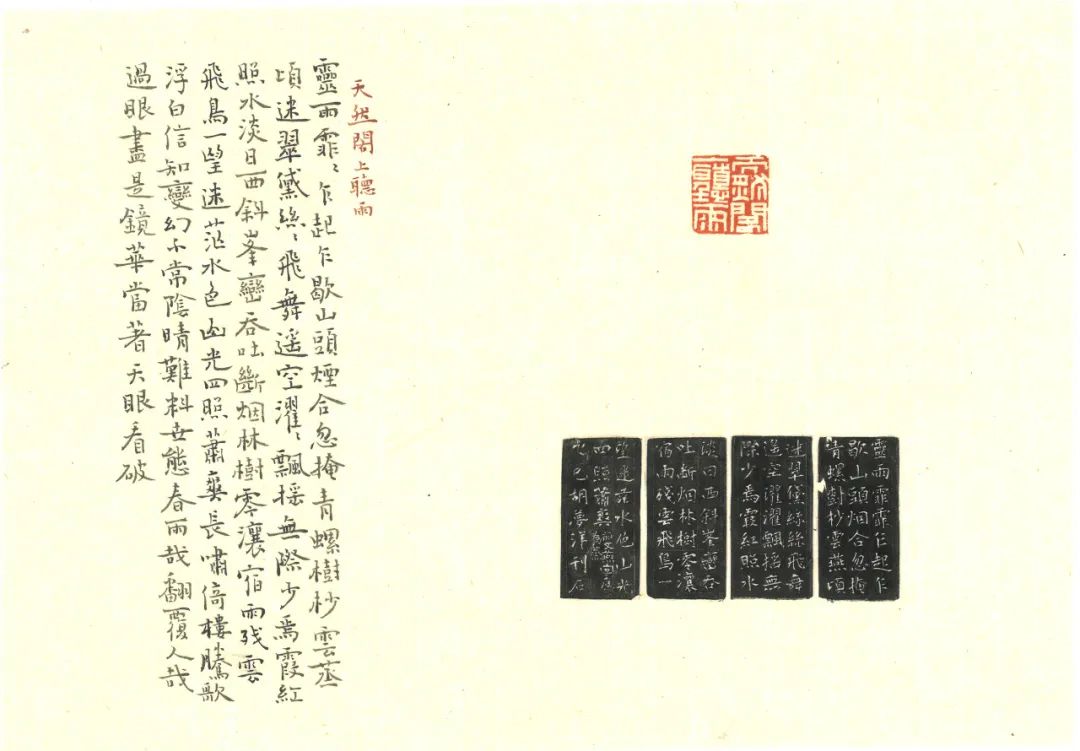 天然閣
上聽雨
靈雨霏霏乍起乍
歇山頭烟合忽掩
青螺樹杪雲蒸頃
迷翠黛絲絲飛舞
遥空濯濯飄摇無
際少焉霞紅照水
淡日西斜峯巒吞
吐断烟林樹零瀼
宿雨残雲飛鳥一
望迷茫水色山光
四照蕭爽
胡夢洋刊石
天然閣上聽雨
靈雨霏〻乍起乍歇山頭煙合忽掩青螺樹杪雲蒸
頃迷翠黛絲〻飛舞遥空濯〻飄摇無際少焉霞紅
照水淡日西斜峯巒吞吐斷烟林樹零瀼宿雨残雲
飛鳥一望迷茫水色山光四照蕭爽長嘯倚樓騰歌
浮白信知變幻不常陰晴難料世態春雨哉翻覆人哉
過眼盡是鏡華當著天眼看破